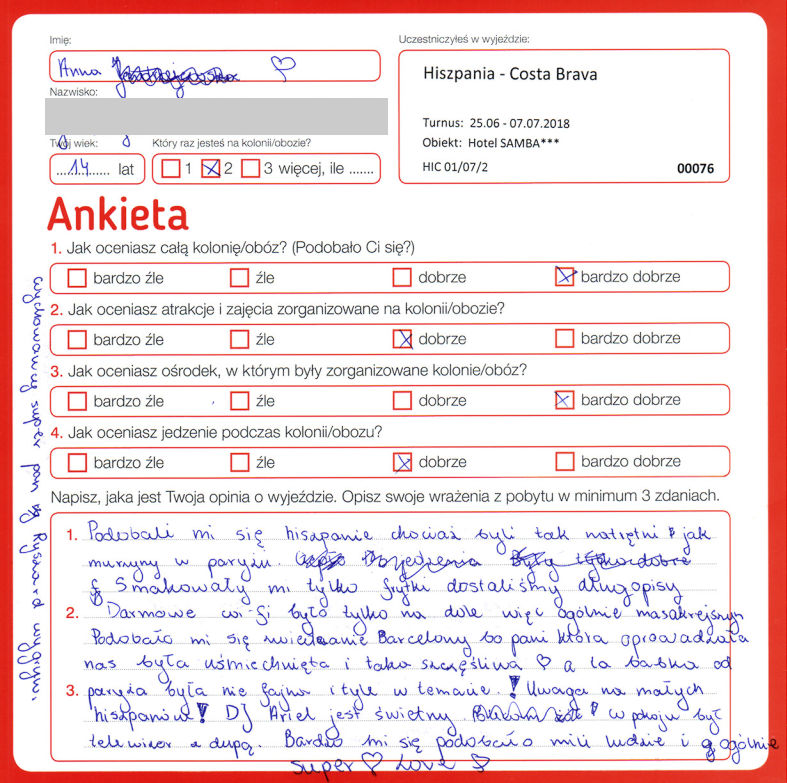 Imię:
Anna
Nazwisko:
Twój wiek:
14 lat
Który raz jesteś na kolonii/obozie?
1 2 3 więcej, ile .......
Uczestniczyłeś w wyjeździe:
Hiszpania - Costa Brava
Turnus: 25.06 - 07.07.2018
Obiekt: Hotel SAMBA***
HIC 01/07/2 00076
Ankieta
1. Jak oceniasz całą kolonię/obóz? (Podobało Ci się?)
bardzo źle źle dobrze bardzo dobrze
2. Jak oceniasz atrakcje i zajęcia zorganizowane na kolonii/obozie?
bardzo źle źle dobrze bardzo dobrze
3. Jak oceniasz ośrodek, w którym były zorganizowane kolonie/obóz?
bardzo źle źle dobrze bardzo dobrze
4. Jak oceniasz jedzenie podczas kolonii/obozu?
bardzo źle źle dobrze bardzo dobrze
Napisz, jaka jest Twoja opinia o wyjeździe. Opisz swoje wrażenia z pobytu w minimum 3 zdaniach.
1. Podobali mi się hiszpanie chociaż byli tak natrętni jak
murzyny w paryżu.
Smakowały mi tylko frytki dostaliśmy długopisy
2. Darmowe wi-fi było tylko na dole więc ogólnie masakrejszyn
Podobało mi się zwiedzanie Barcelony bo pani która oprowadzała
nas była uśmiechnięta i taka szczęśliwa ♡ a ta babka od
3. paryża była nie fajna i tyle w temacie! Uwaga na małych
hiszpanów! DJ Ariel jest świetny. W pokoju był
telewizor z dupą. Bardzo mi się podobało mili ludzie i ogólnie
super ♡ Love
wychowawcy super pan Ryszard wygryw.